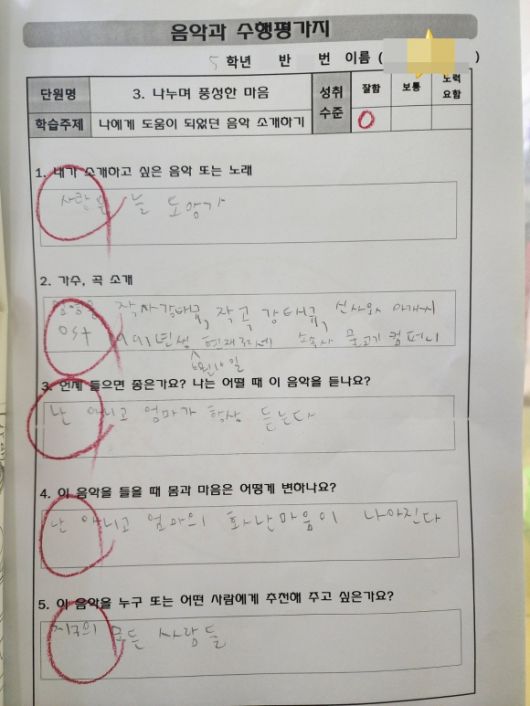 음악과 수행평가지
5학년 반 번 이름 ( )
단원명 3. 나누며 풍성한 마음 성취수준 잘함 보통 노력요함
학습주제 나에게 도움이 되었던 음악 소개하기 O
1. 내가 소개하고 싶은 음악 또는 노래
사랑은 늘 도망가
2. 가수, 곡 소개
임영웅 작사 강태규, 작곡 강태규, 신사와 아가씨
ost 1991년생 현재 소속사 물고기 컴퍼니
6월 16일
3. 언제 들으면 좋은가요? 나는 어떨 때 이 음악을 듣나요?
난 아니고 엄마가 항상 듣는다
4. 이 음악을 들을 때 몸과 마음은 어떻게 변하나요?
난 아니고 엄마의 화난마음이 나아진다
5. 이 음악을 누구 또는 어떤 사람에게 추천해 주고 싶은가요?
지구의 모든 사람들